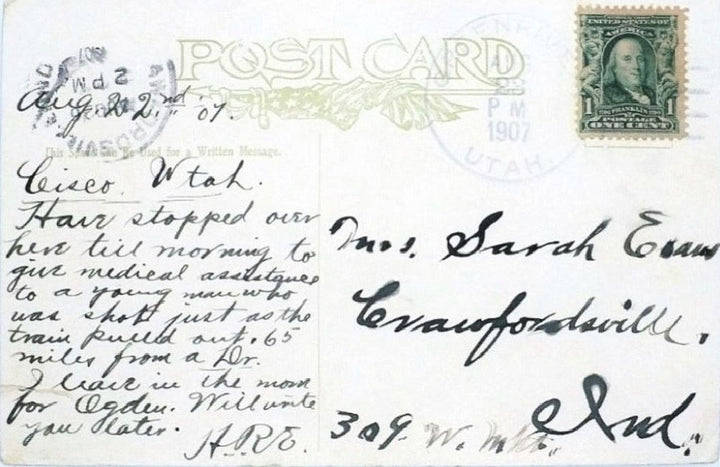 POST CARD
Aug 22nd '07.
This Space Can Be Used for a Written Message.
Cisco, Utah.
Have stopped over
here till morning to
give medical assistance
to a young man who
was shot just as the
train pulled out. 65
miles from a Dr.
I leave in the morn
for Ogden. Will write
you later.
H.R.E.
2 PM
AUG
PM
1907
UTAH.
UNITED STATES OF
AMERICA
1
FRANKLIN
POSTAGE
ONE CENT
Mrs. Sarah Evans
Crawfordsville,
Ind.
309 W. Mkt.